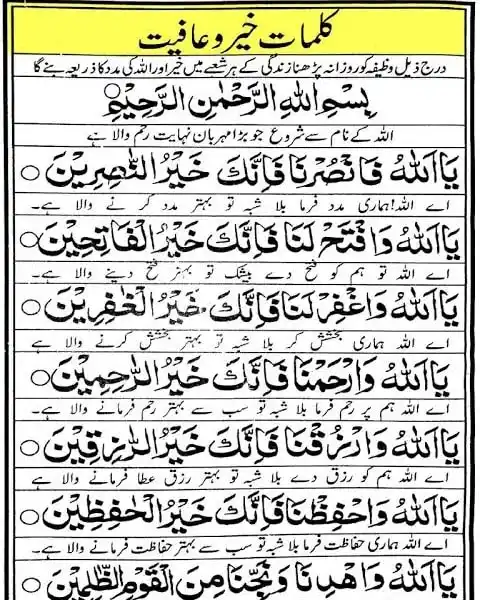 کلمات خیر و عافیت
درج ذیل وظیفہ کو روزانہ پڑھنا زندگی کے ہر شعبے میں خیر اور اللہ کی مدد کا ذریعہ بنے گا
بِسْمِ اللهِ الرَّحْمٰنِ الرَّحِيْمِ
اللہ کے نام سے شروع جو بڑا مہربان نہایت رحم والا ہے
يَا اَللهُ فَانْصُرْنَا فَاِنَّكَ خَيْرُ النّٰصِرِيْنَ
اے اللہ! ہماری مدد فرما بلا شبہ تو بہتر مدد کرنے والا ہے۔
يَا اَللهُ وَافْتَحْ لَنَا فَاِنَّكَ خَيْرُ الْفَاتِحِيْنَ
اے اللہ تو ہم کو فتح دے بیشک تو بہتر فتح دینے والا ہے۔
يَا اَللهُ وَاغْفِرْ لَنَا فَاِنَّكَ خَيْرُ الْغٰفِرِيْنَ
اے اللہ ہماری بخشش کر بلا شبہ تو بہتر بخشش کرنے والا ہے
يَا اَللهُ وَارْحَمْنَا فَاِنَّكَ خَيْرُ الرّٰحِمِيْنَ
اے اللہ ہم پر رحم فرما بلا شبہ تو سب سے بہتر رحم فرمانے والا ہے۔
يَا اَللهُ وَارْزُقْنَا فَاِنَّكَ خَيْرُ الرّٰزِقِيْنَ
اے اللہ ہم کو رزق دے بلا شبہ تو بہتر رزق عطا فرمانے والا ہے
يَا اَللهُ وَاحْفِظْنَا فَاِنَّكَ خَيْرُ الْحٰفِظِيْنَ
اے اللہ ہماری حفاظت فرما بلا شبہ تو سب سے بہتر حفاظت فرمانے والا ہے۔
يَا اَللهُ وَاهْدِنَا وَنَجِّنَا مِنَ الْقَوْمِ الظّٰلِمِيْنَ